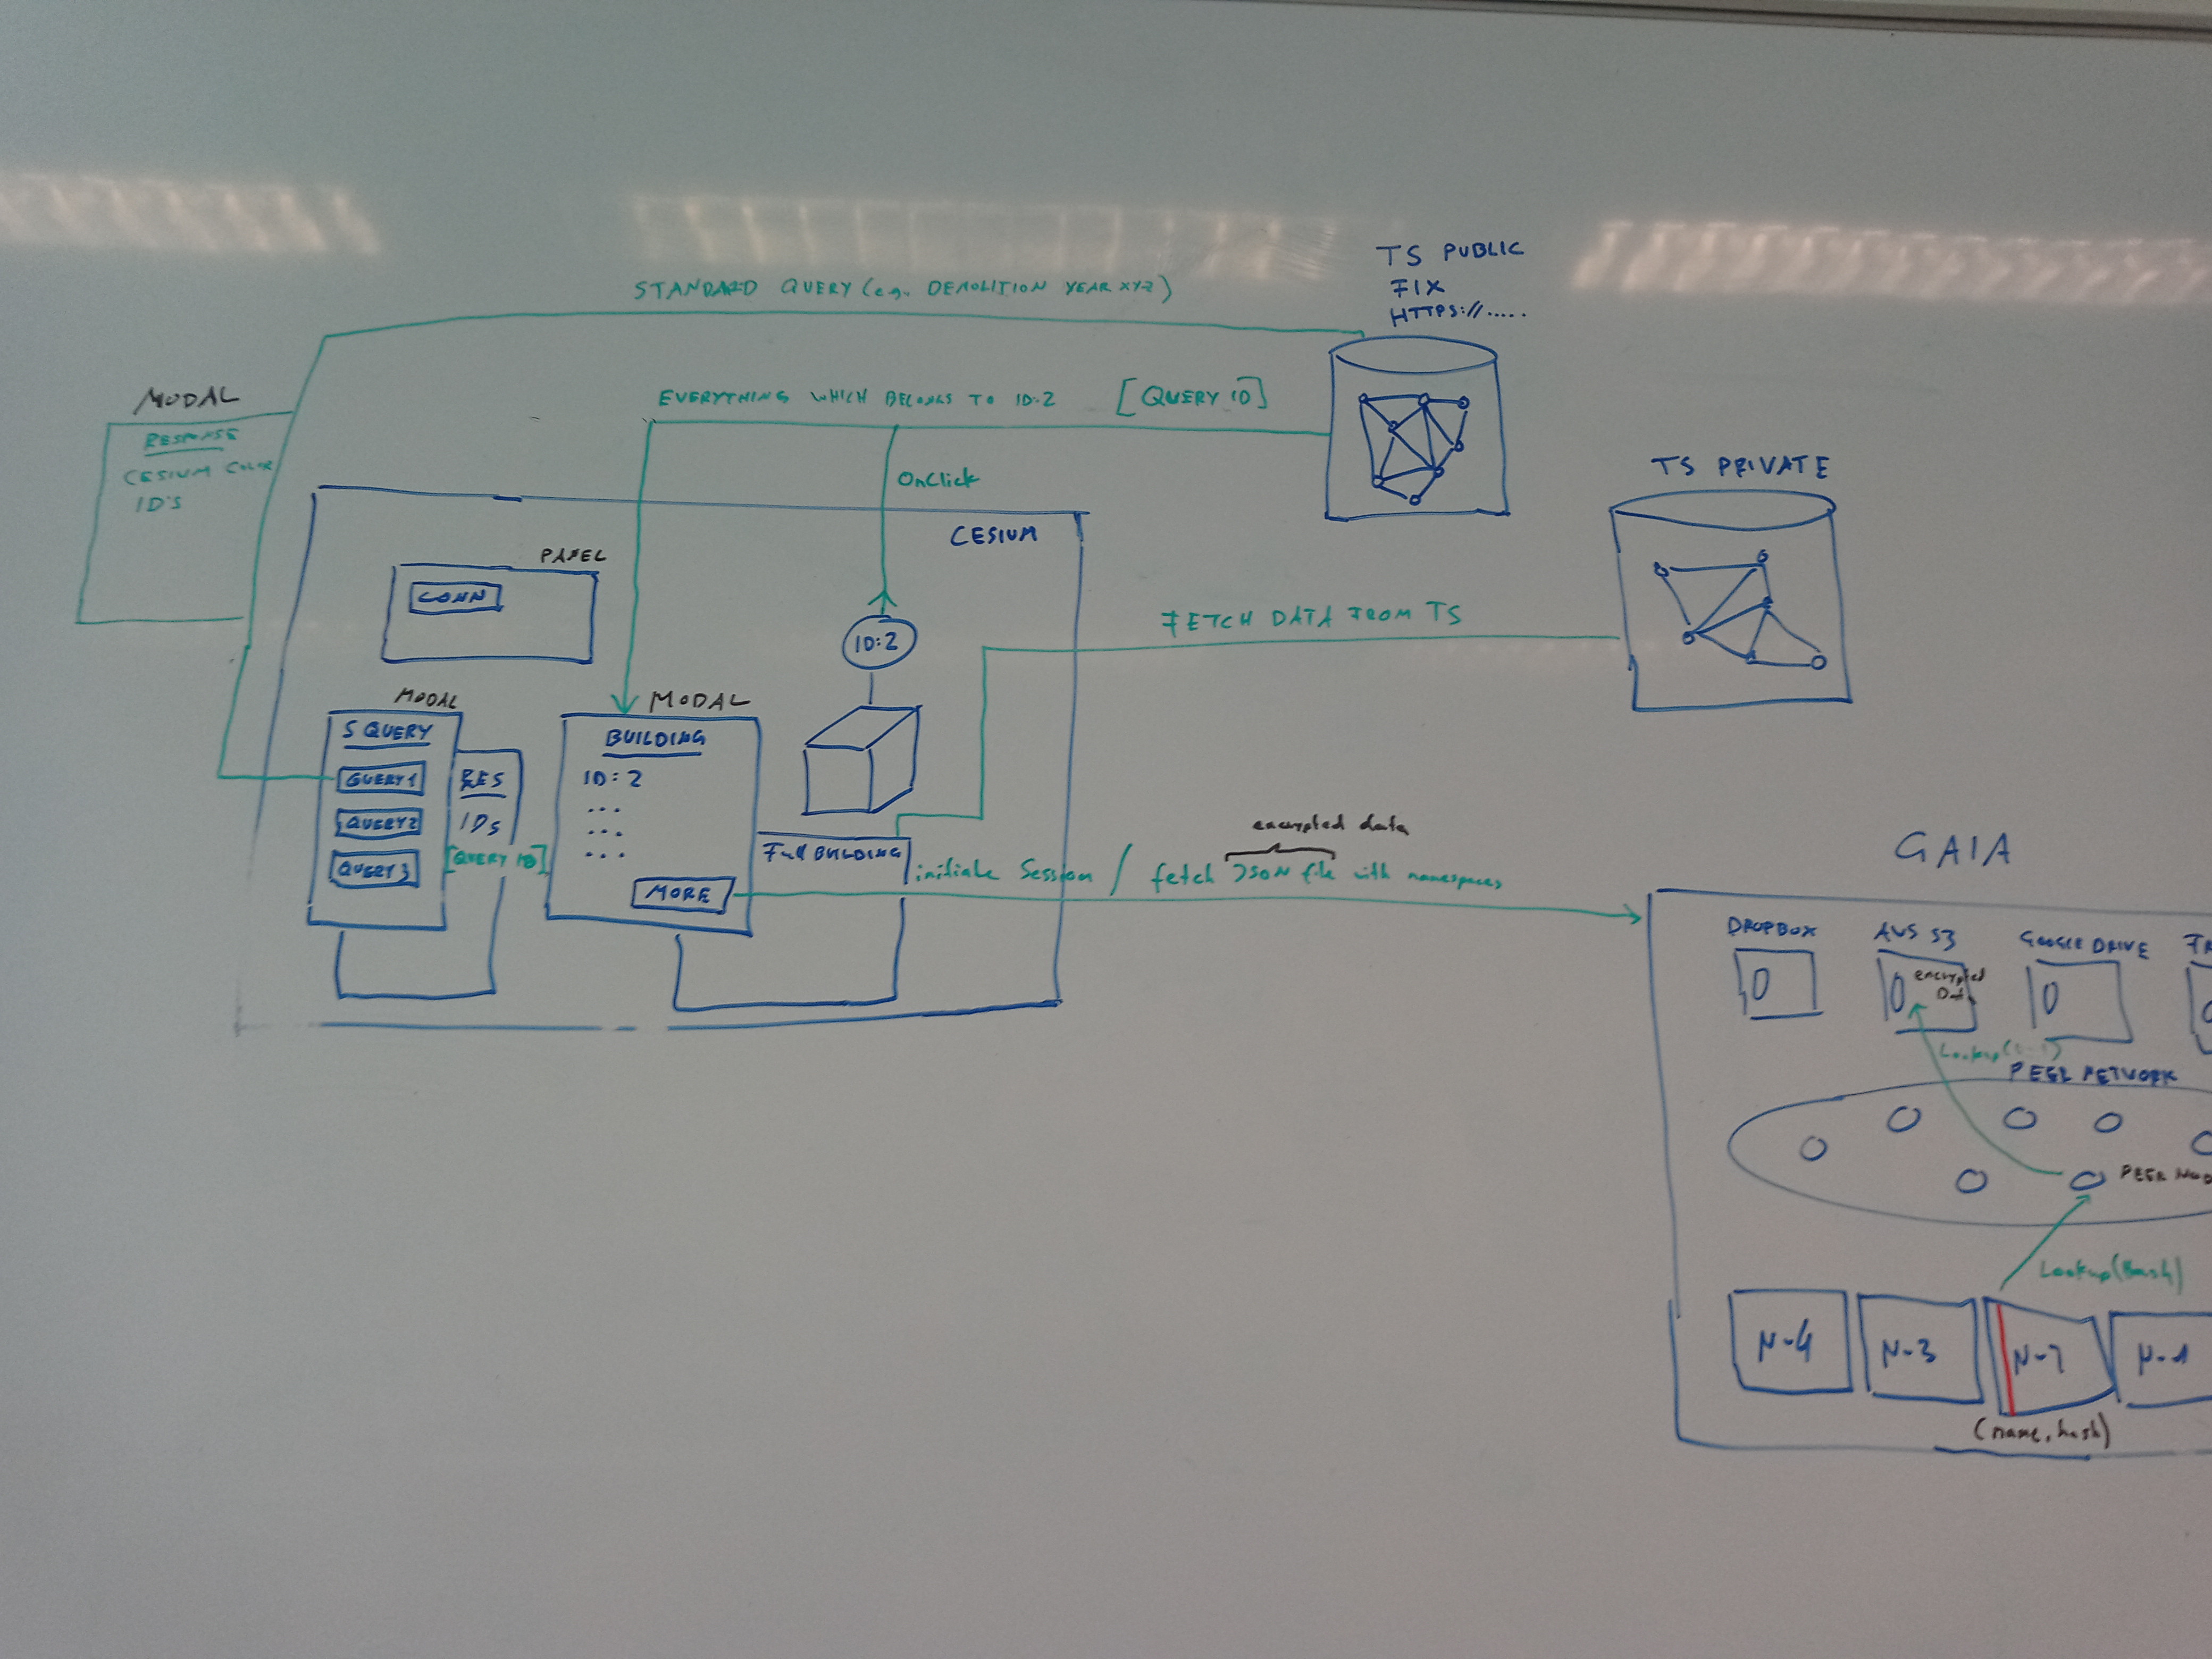 TS PUBLIC
FIX
HTTPS://.....
STANDARD QUERY (e.g. DEMOLITION YEAR XYZ)
MODAL
RESPONSE
CESIUM COLOR
ID'S
EVERYTHING WHICH BELONGS TO ID:2 [QUERY ID]
OnClick
TS PRIVATE
CESIUM
PANEL
CONN
ID:2
FETCH DATA FROM TS
MODAL
S QUERY
QUERY1
QUERY2
QUERY3
RES
IDs
[QUERY ID]
MODAL
BUILDING
ID: 2
...
...
...
MORE
Full BUILDING
encrypted data
initiate Session / fetch JSON file with namespaces
GAIA
DROPBOX
AWS S3
GOOGLE DRIVE
FR
encrypted
Data
PEER NETWORK
PEER NOD
Lookup(Hash)
N-4
N-3
N-2
N-1
(name, hash)